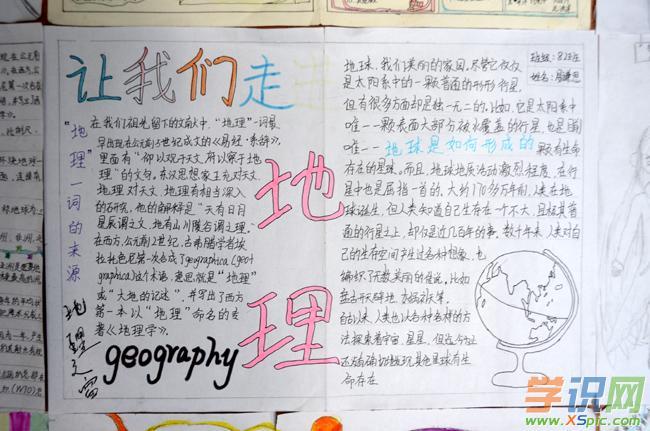 让我们走进
"地理"一词的来源
在我们祖先留下的文献中,"地理"一词最
早出现在公元前5世纪成文的《易经·系辞》。
里面有"仰以观于天文,俯以察于地
理"的文句。东汉思想家王充对天文、
地理,对天文、地理有相当深入
的研究,他的解释是"天有日月
星辰谓之文,地有山川陵谷谓之理。
在西方,公元前2世纪,古希腊学者埃
拉托色尼第一次合成了geographica(geo+
graphica)这个术语,意思就是"地理"
或"大地的记述",并写出了西方
第一本以"地理"命名的专
著《地理学》。
地理之窗
geography
地理
班级:
姓名:
地球,我们美丽的家园。尽管它仅仅
是太阳系中的一颗普通的行星,
但有很多方面却是独一无二的。比如,它是太阳系中
唯一一颗表面大部分被水覆盖的行星,也是目前
唯一一颗有生命
地球是如何形成的
存在的星球。而且,地球地质活动激烈程度,在行
星中也是屈指一首的。大约170多万年前,人类在地
球诞生,但人类知道自己生存在一个不大,且极其普
通的行星之上,却仅是近几百年的事。数千年来,人类对自
己的生存空间产生过各种想象,也
编织了无数美丽的传说。比如
来,人类也以各种各样的方
法探索着宇宙,星星,但迄今为止
还没有确切地发现其他星球有生
命存在
学识网
www.XSpic.com